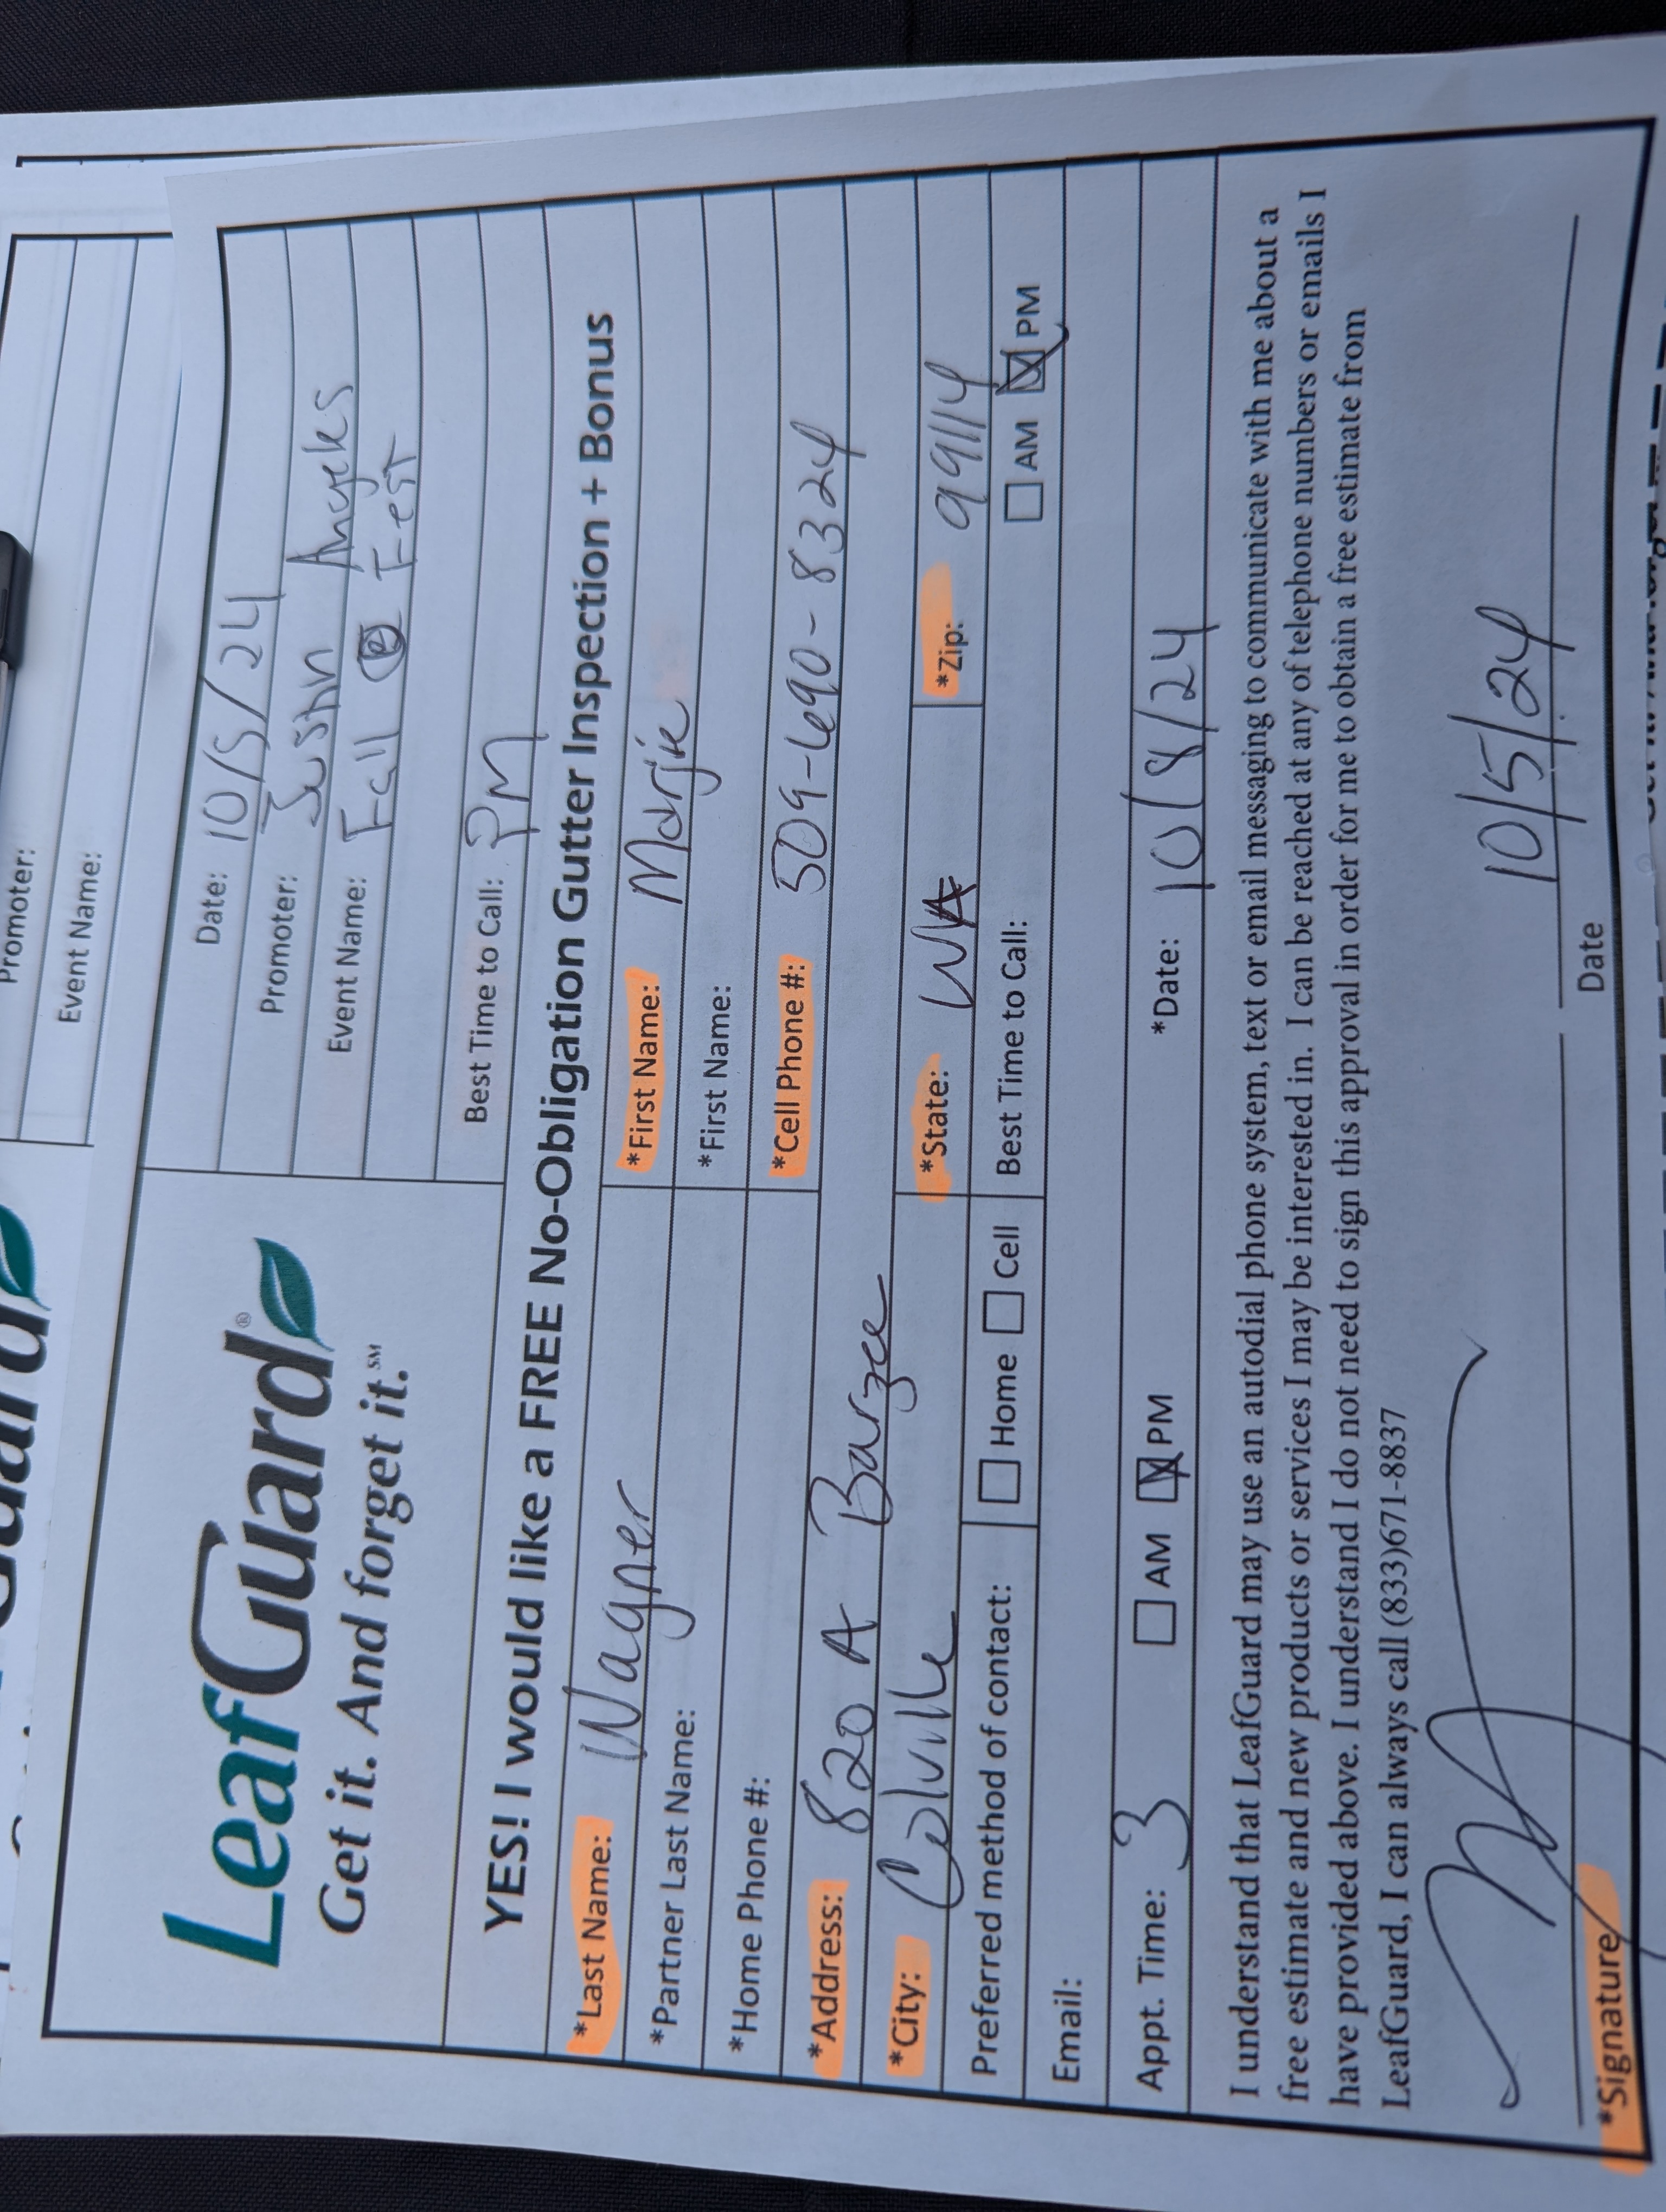 Promoter:
Event Name:
LeafGuard®
Get it. And forget it.℠
Date: 10/5/24
Promoter: Angeles
Event Name: Fall Fest
Best Time to Call: PM
YES! I would like a FREE No-Obligation Gutter Inspection + Bonus
*Last Name: Wagner *First Name: Marjie
*Partner Last Name: *First Name:
*Home Phone #: *Cell Phone #: 509-690-8324
*Address: 820 A Barzee
*City: Colville *State: WA *Zip: 99114
Preferred method of contact: Home Cell Best Time to Call: AM PM
Email:
Appt. Time: 3 AM PM *Date: 10/8/24
I understand that LeafGuard may use an autodial phone system, text or email messaging to communicate with me about a
free estimate and new products or services I may be interested in. I can be reached at any of telephone numbers or emails I
have provided above. I understand I do not need to sign this approval in order for me to obtain a free estimate from
LeafGuard, I can always call (833)671-8837
10/5/24
*Signature Date